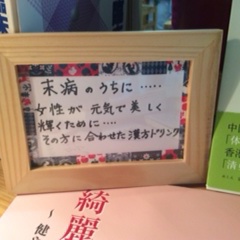 未病のうちに.....
女性が元気で美しく
輝くために....
その方に合わせた漢方ドリンク
綺麗
中
「体
香港
「清